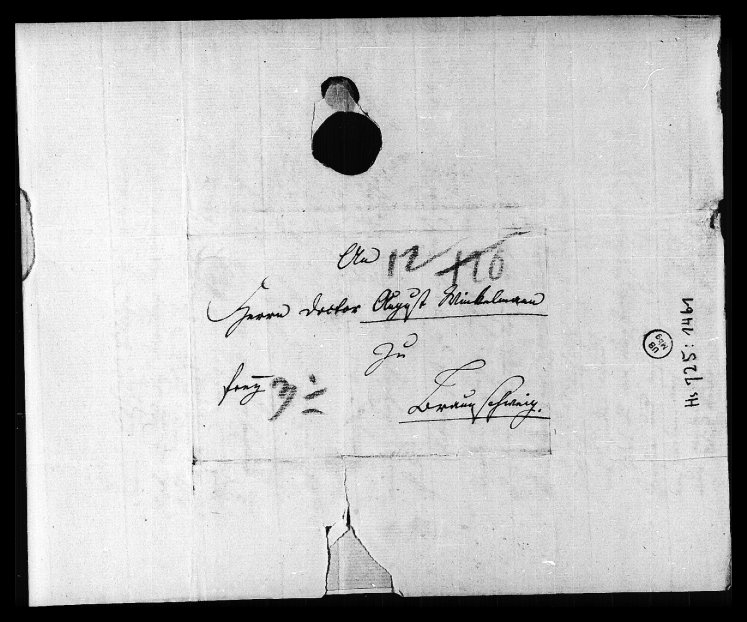 An 12
Herrn Doctor August Winkelmann
zu
frey
Braunschweig.
UB
Mbg
Hs 725: 1461